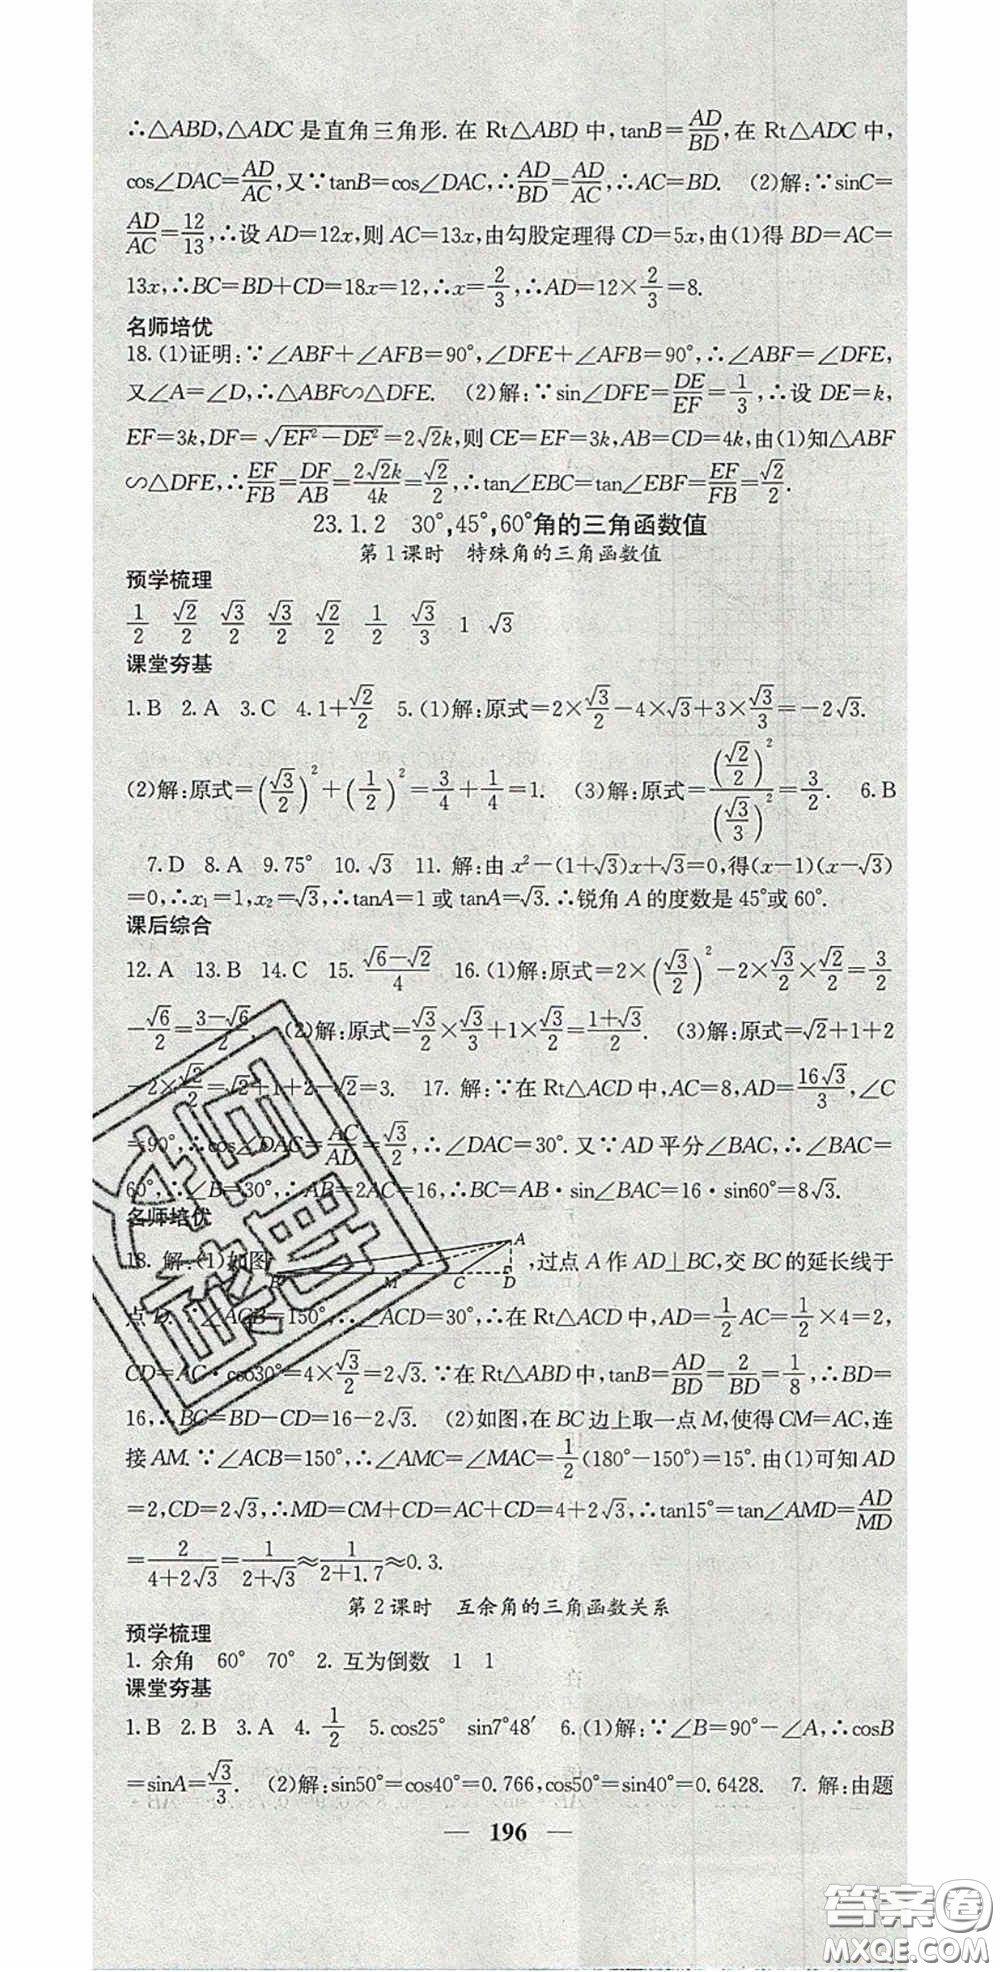 ∴△ABD,△ADC是直角三角形.在Rt△ABD中,tanB=AD/BD,在Rt△ADC中,
cos∠DAC=AD/AC,又∵tanB=cos∠DAC,∴AD/BD=AD/AC,∴AC=BD. (2)解:∵sinC=
AD/AC=12/13,∴设AD=12x,则AC=13x,由勾股定理得CD=5x,由(1)得BD=AC=
13x,∴BC=BD+CD=18x=12,∴x=2/3,∴AD=12×2/3=8.
名师培优
18.(1)证明:∵∠ABF+∠AFB=90°,∠DFE+∠AFB=90°,∴∠ABF=∠DFE,
又∠A=∠D,∴△ABF∽△DFE. (2)解:∵sin∠DFE=DE/EF=1/3,∴设DE=k,
EF=3k,DF=√(EF²-DE²)=2√2k,则CE=EF=3k,AB=CD=4k,由(1)知△ABF
∽△DFE,∴EF/FB=DF/AB=2√2k/4k=√2/2,∴tan∠EBC=tan∠EBF=EF/FB=√2/2.
23.1.2 30°,45°,60°角的三角函数值
第1课时 特殊角的三角函数值
预学梳理
1/2 √2/2 √3/2 √3/2 √2/2 1/2 √3/3 1 √3
课堂夯基
1.B 2.A 3.C 4.1+√2/2 5.(1)解:原式=2×√3/2-4×√3+3×√3/3=-2√3.
(2)解:原式=(√3/2)²+(1/2)²=3/4+1/4=1. (3)解:原式=(√2/2)²/(√3/3)²=3/2. 6.B
7.D 8.A 9.75° 10.√3 11.解:由x²-(1+√3)x+√3=0,得(x-1)(x-√3)
=0,∴x₁=1,x₂=√3,∴tanA=1或tanA=√3.∴锐角A的度数是45°或60°.
课后综合
12.A 13.B 14.C 15.(√6-√2)/4 16.(1)解:原式=2×(√3/2)²-2×√3/2×√2/2=3/2
-√6/2=(3-√6)/2. (2)解:原式=√3/2×√3/3+1×√3/2=(1+√3)/2. (3)解:原式=√2+1+2
-2×√2/2=√2+1+2-√2=3. 17.解:∵在Rt△ACD中,AC=8,AD=16√3/3,∠C
=90°,∴cos∠DAC=AC/AD=√3/2,∴∠DAC=30°.又∵AD平分∠BAC,∴∠BAC=
60°,∴∠B=30°,∴AB=2AC=16,∴BC=AB·sin∠BAC=16·sin60°=8√3.
名师培优
18.解:(1)如图 B M C D A ,过点A作AD⊥BC,交BC的延长线于
点D.∵∠ACB=150°,∴∠ACD=30°,∴在Rt△ACD中,AD=1/2AC=1/2×4=2,
CD=AC·cos30°=4×√3/2=2√3.∵在Rt△ABD中,tanB=AD/BD=2/BD=1/8,∴BD=
16,∴BC=BD-CD=16-2√3. (2)如图,在BC边上取一点M,使得CM=AC,连
接AM.∵∠ACB=150°,∴∠AMC=∠MAC=1/2(180°-150°)=15°.由(1)可知AD
=2,CD=2√3,∴MD=CM+CD=AC+CD=4+2√3,∴tan15°=tan∠AMD=AD/MD
=2/(4+2√3)=1/(2+√3)≈1/(2+1.7)≈0.3.
第2课时 互余角的三角函数关系
预学梳理
1.余角 60° 70° 2.互为倒数 1 1
课堂夯基
1.B 2.B 3.A 4.1/2 5.cos25° sin7°48′ 6.(1)解:∵∠B=90°-∠A,∴cosB
=sinA=√3/3. (2)解:sin50°=cos40°=0.766,cos50°=sin40°=0.6428. 7.解:由题
— 196 —
答案圈
MXQE.COM